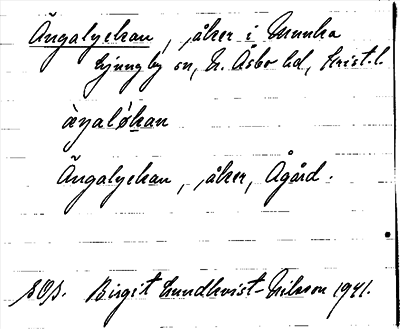 Ängalyckan, åker i Munka
Ljungby sn, N. Åsbo hd, Krist. l.
Ängalyckan, åker, Ågård.
SOP. Birgit Lundkvist-Nilsson 1941.